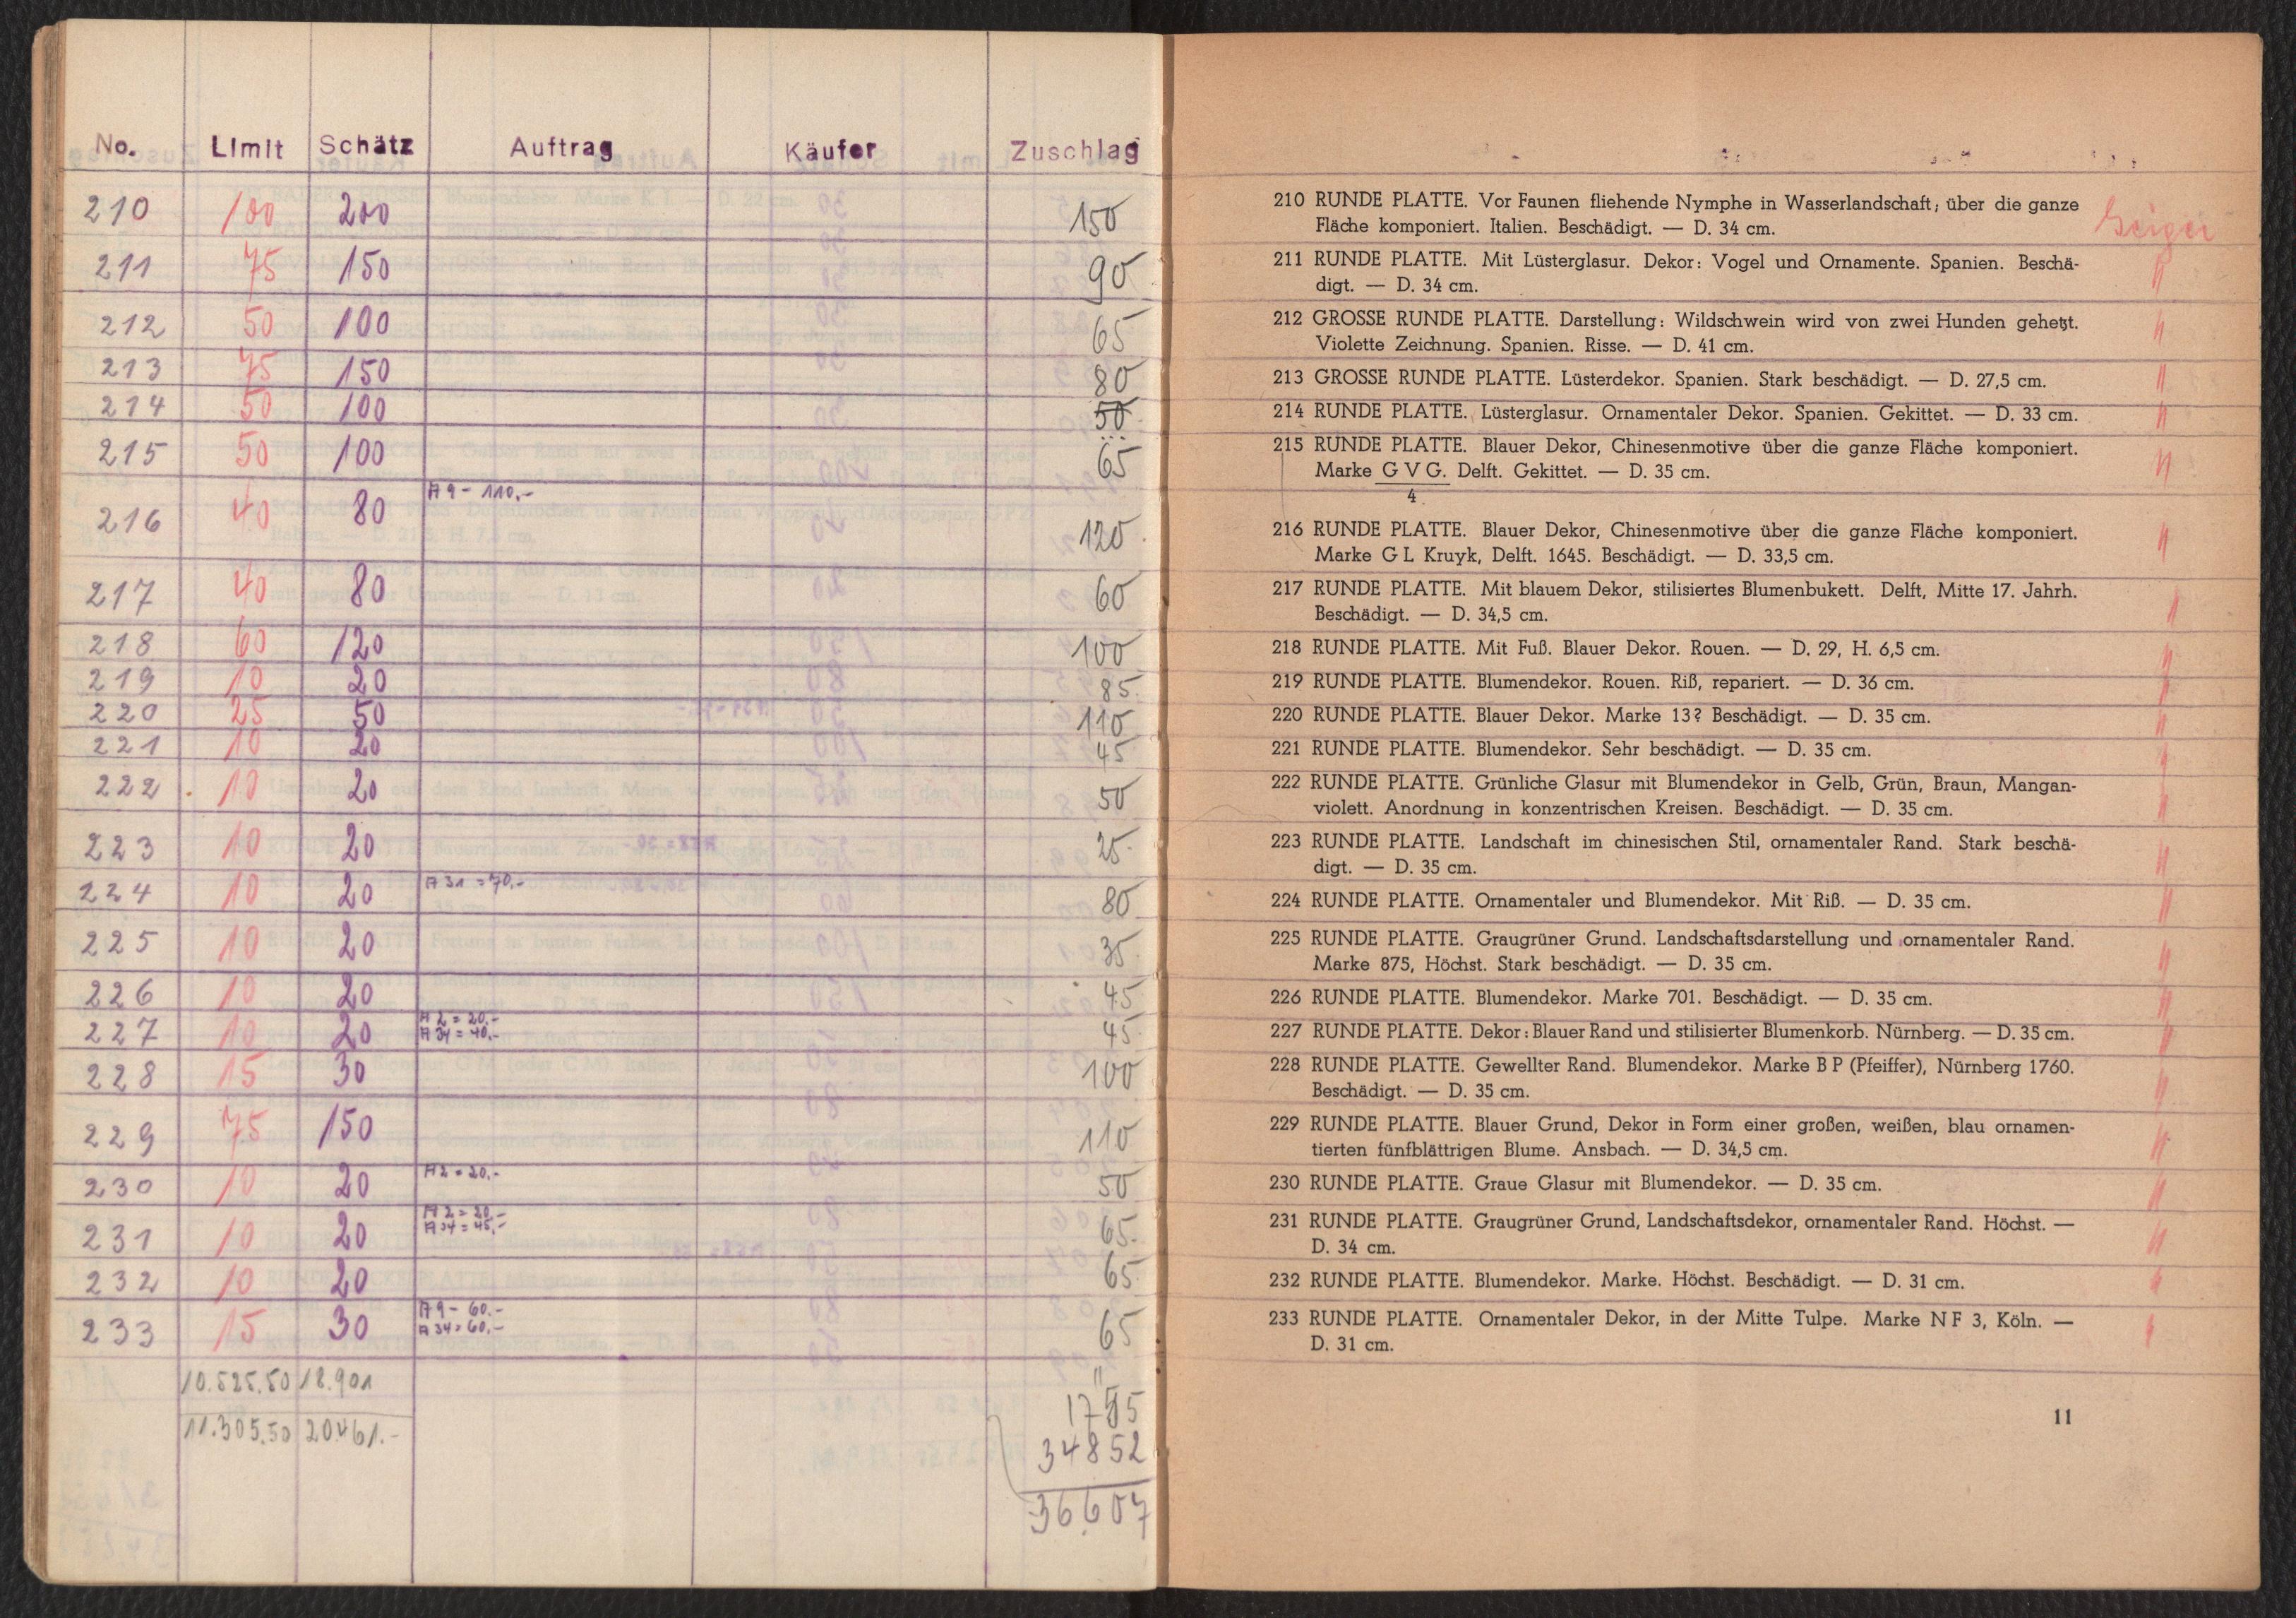 No. Limit Schätz Auftrag Käufer Zuschlag
210 100 200 150
211 75 150 90
212 50 100 65
213 75 150 80
214 50 100 50
215 50 100 65
216 40 80 A 9 - 110.- 120
217 40 80 60
218 60 120 100
219 10 20 85.
220 25 50 110
221 10 20 45
222 10 20 50
223 10 20 25.
224 10 20 A 31 = 70.- 80
225 10 20 35.
226 10 20 45
227 10 20 A 2 = 20.- 45
A 34 = 40.-
228 15 30 100
229 75 150 110
230 10 20 A 2 = 20.- 50
231 10 20 A 2 = 20.- 65.
A 34 = 45.-
232 10 20 65
233 15 30 A 9 - 60.- 65
A 34 = 60.-
10.525.50 18.901
"
1755
11.305.50 20461.-
34852
36.607
210 RUNDE PLATTE. Vor Faunen fliehende Nymphe in Wasserlandschaft; über die ganze
Fläche komponiert. Italien. Beschädigt. — D. 34 cm.
Geiger
211 RUNDE PLATTE. Mit Lüsterglasur. Dekor: Vogel und Ornamente. Spanien. Beschä-
digt. — D. 34 cm. "
212 GROSSE RUNDE PLATTE. Darstellung: Wildschwein wird von zwei Hunden gehetzt.
Violette Zeichnung. Spanien. Risse. — D. 41 cm. "
213 GROSSE RUNDE PLATTE. Lüsterdekor. Spanien. Stark beschädigt. — D. 27,5 cm. "
214 RUNDE PLATTE. Lüsterglasur. Ornamentaler Dekor. Spanien. Gekittet. — D. 33 cm. "
215 RUNDE PLATTE. Blauer Dekor, Chinesenmotive über die ganze Fläche komponiert.
Marke G V G. Delft. Gekittet. — D. 35 cm. "
4
216 RUNDE PLATTE. Blauer Dekor, Chinesenmotive über die ganze Fläche komponiert.
Marke G L Kruyk, Delft. 1645. Beschädigt. — D. 33,5 cm. "
217 RUNDE PLATTE. Mit blauem Dekor, stilisiertes Blumenbukett. Delft, Mitte 17. Jahrh.
Beschädigt. — D. 34,5 cm. "
218 RUNDE PLATTE. Mit Fuß. Blauer Dekor. Rouen. — D. 29, H. 6,5 cm. "
219 RUNDE PLATTE. Blumendekor. Rouen. Riß, repariert. — D. 36 cm. "
220 RUNDE PLATTE. Blauer Dekor. Marke 13? Beschädigt. — D. 35 cm. "
221 RUNDE PLATTE. Blumendekor. Sehr beschädigt. — D. 35 cm. "
222 RUNDE PLATTE. Grünliche Glasur mit Blumendekor in Gelb, Grün, Braun, Mangan-
violett. Anordnung in konzentrischen Kreisen. Beschädigt. — D. 35 cm. "
223 RUNDE PLATTE. Landschaft im chinesischen Stil, ornamentaler Rand. Stark beschä-
digt. — D. 35 cm. "
224 RUNDE PLATTE. Ornamentaler und Blumendekor. Mit Riß. — D. 35 cm. "
225 RUNDE PLATTE. Graugrüner Grund. Landschaftsdarstellung und ornamentaler Rand.
Marke 875, Höchst. Stark beschädigt. — D. 35 cm. "
226 RUNDE PLATTE. Blumendekor. Marke 701. Beschädigt. — D. 35 cm. "
227 RUNDE PLATTE. Dekor: Blauer Rand und stilisierter Blumenkorb. Nürnberg. — D. 35 cm. "
228 RUNDE PLATTE. Gewellter Rand. Blumendekor. Marke B P (Pfeiffer), Nürnberg 1760.
Beschädigt. — D. 35 cm. "
229 RUNDE PLATTE. Blauer Grund, Dekor in Form einer großen, weißen, blau ornamen-
tierten fünfblättrigen Blume. Ansbach. — D. 34,5 cm. "
230 RUNDE PLATTE. Graue Glasur mit Blumendekor. — D. 35 cm. "
231 RUNDE PLATTE. Graugrüner Grund, Landschaftsdekor, ornamentaler Rand. Höchst. —
D. 34 cm. "
232 RUNDE PLATTE. Blumendekor. Marke. Höchst. Beschädigt. — D. 31 cm. "
233 RUNDE PLATTE. Ornamentaler Dekor, in der Mitte Tulpe. Marke N F 3, Köln. —
D. 31 cm. "
11